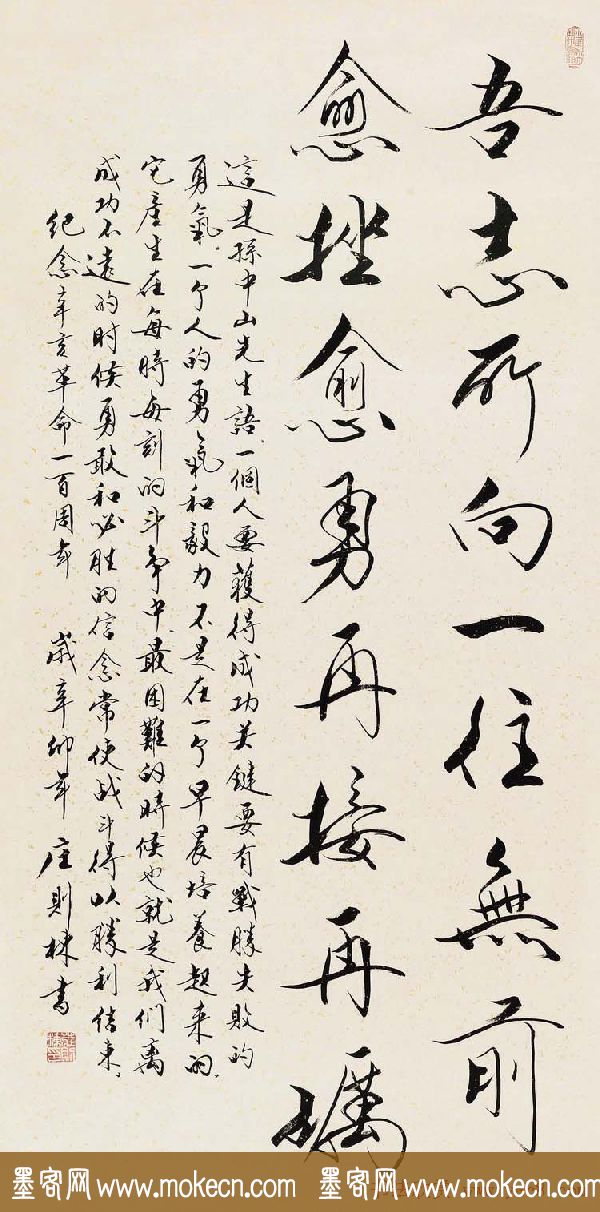 吾志所向一往無前
愈挫愈勇再接再礪
這是孫中山先生語、一個人要獲得成功关鍵要有戰勝失敗的
勇氣、一个人的勇氣和毅力不是在一个早晨培養起来的、
它産生在每時每刻的斗争中、最困難的時候也就是我们离
成功不遠的时候勇敢和必胜的信念常使战斗得以勝利结束、
纪念辛亥革命一百周年 歲辛卯年 庄則棟書
墨客网 www.mokecn.com 墨客网 www.mokecn.com